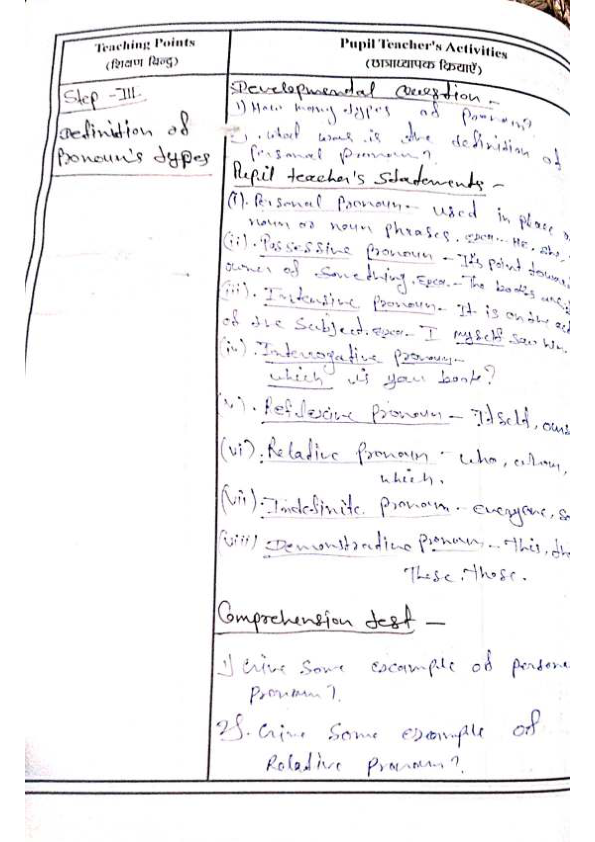 Teaching Points
(शिक्षण बिन्दु)
Pupil Teacher's Activities
(छात्राध्यापक क्रियाएँ)
Step - III.
Definition of
Pronoun's types
Developmental Question -
1) How many types of pronoun?
what is the definition of
Personal pronoun?
Pupil teacher's Statements -
(i). Personal Pronoun - used in place
noun or noun phrases. He, she,
(ii). Possessive pronoun - It's point
owner of something. The books
(iii). Intensive pronoun - It is on the
of the subject. I myself saw him.
(iv). Interrogative pronoun -
which is you book?
(v). Reflexive pronoun - Itself,
(vi). Relative pronoun - who, whom,
which.
(vii). Indefinite pronoun - everyone,
(viii) Demonstrative pronoun - This,
These, Those.
Comprehension test -
1) Give some example of
pronoun?
2). Give Some example of
Relative pronoun?